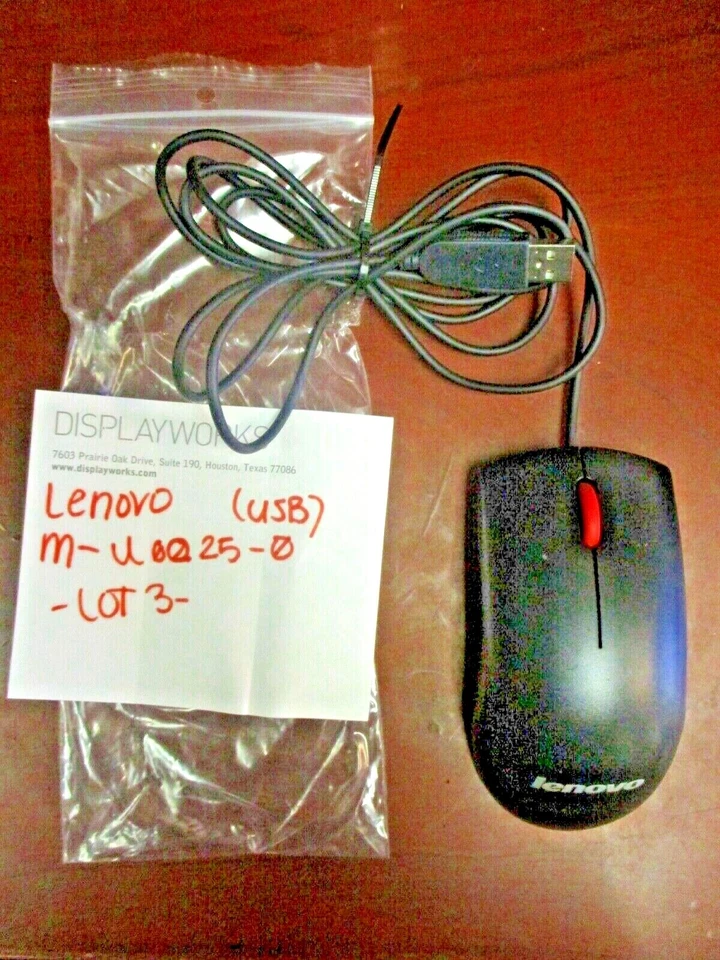 DISPLAYWORKS
7603 Prairie Oak Drive, Suite 190, Houston, Texas 77086
www.displayworks.com
Lenovo (USB)
M-U0025-0
-LOT 3-
lenovo